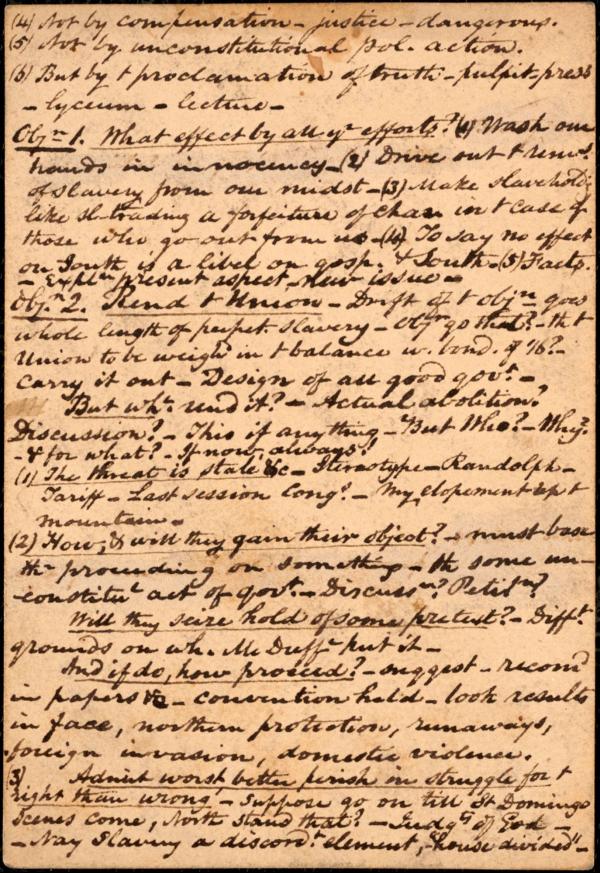 (4) Not by compensation – justice – dangerous.
(5) Not by unconstitutional pol. action.
(6) But by t proclamation of truth – pulpit – press
– lyceum – lecture –
Objn 1. What effect by all yr efforts? (1) Wash our
hands in innocency – (2) Drive out t
of slavery from our midst – (3) Make slavehold
like sl. trading a forfeiture of char in t case of
those who go out from us – (4) To say no effect
on South is a libel on gosp. & South – (5) Facts.
– Expln present aspect – new issue –
Obj.n 2. Rend t Union – Drift of t objn goes
whole length of perpet. slavery – Objr go that? – tht
Union to be weighd in t balance w. bond. of
carry it out – Design of all good govt. –
But wht. und it? – Actual abolition?
Discussion? – This if anything – But Who? – Why?
– & for what? – If now, always?
(1) The threat is stale &c – Stereotype – Randolph –
Tariff – Last session Cong. – My elopement up t
mountain –
(2) How, & will they gain their object? – must base
thr proceeding on something – th some un-
constitul act of govt. – Discussn? Petitn?
Will they seize hold of some pretext? – Difft.
grounds on wh. McDuff put it –
And if do, how proceed? – suggest – recomd
in papers &c – convention held – look results
in face, northern protection, runaways,
foreign invasion, domestic violence.
3) Admit worst, better perish in struggle for t
right than wrong – Suppose go on till St Domingo
scenes come, North stand that? – Judgts of God –
– Nay Slavery a discordt element, – "house divided" –